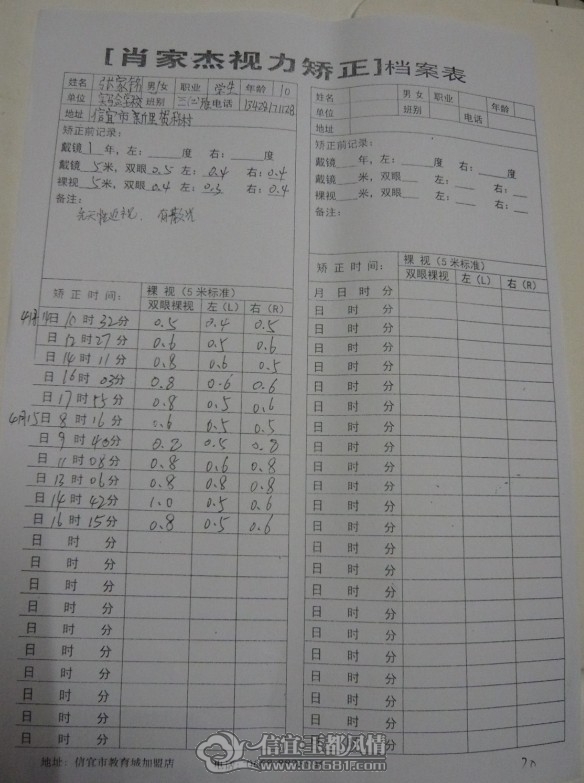 [肖家杰视力矫正]档案表
姓名 张家 男/女 职业 学生 年龄 10
单位 实验学校 班别 电话
地址 信宜市
矫正前记录:
戴镜 1 年, 左: 度 右: 度
戴镜 5 米, 双眼 0.5 左: 0.4 右: 0.4
裸视 5 米, 双眼 0.4 左: 0.3 右: 0.4
备注:
先天性近视、有散光
矫正时间: 裸视(5米标准)
双眼裸视 左(L) 右(R)
4月14日 10时32分 0.5 0.4 0.5
日 12时27分 0.6 0.5 0.6
日 14时11分 0.8 0.6 0.5
日 16时03分 0.8 0.6 0.6
日 17时55分 0.8 0.5 0.6
4月15日 8时16分 0.6 0.5 0.5
日 9时40分 0.5 0.8
日 11时08分 0.8 0.6 0.8
日 13时06分 0.8 0.8 0.8
日 14时42分 1.0 0.5 0.6
日 16时15分 0.8 0.5 0.6
日 时 分
日 时 分
日 时 分
日 时 分
日 时 分
日 时 分
日 时 分
日 时 分
日 时 分
姓名 男女 职业 年龄
单位 班别 电话
地址
矫正前记录:
戴镜 年, 左: 度 右: 度
戴镜 米, 双眼 左: 右:
裸视 米, 双眼 左: 右:
备注:
矫正时间: 裸视(5米标准)
双眼裸视 左(L) 右(R)
月 日 时 分
日 时 分
日 时 分
日 时 分
日 时 分
日 时 分
日 时 分
日 时 分
日 时 分
日 时 分
日 时 分
日 时 分
日 时 分
日 时 分
日 时 分
日 时 分
日 时 分
日 时 分
日 时 分
日 时 分
地址: 信宜市教育城加盟店
信宜·玉都风情
www.06681.com